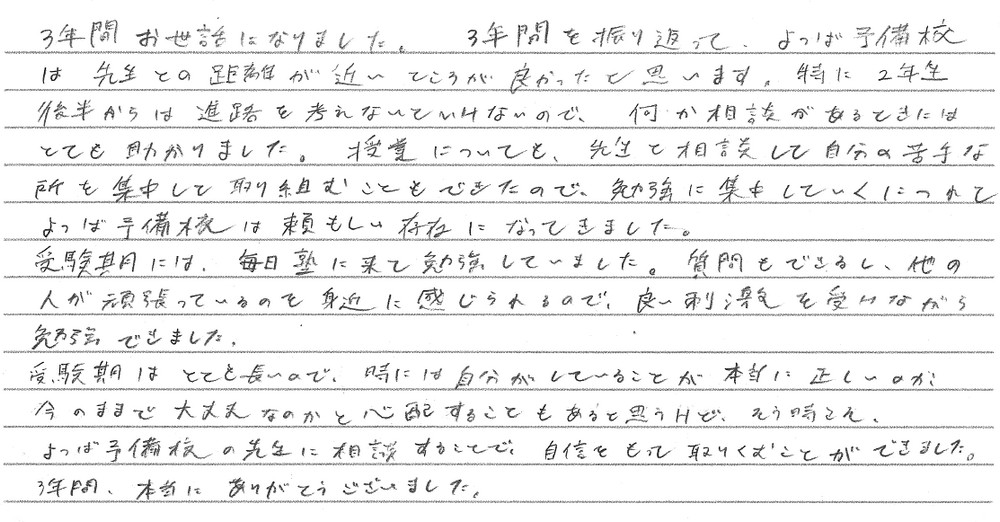 3年間お世話になりました。 3年間を振り返って、よつば予備校
は先生との距離が近いところが良かったと思います。特に2年生
後半からは進路を考えないといけないので、何か相談があるときには
とても助かりました。授業についても、先生と相談して自分の苦手な
所を集中して取り組むこともできたので、勉強に集中していくにつれて
よつば予備校は頼もしい存在になってきました。
受験期には、毎日塾に来て勉強していました。質問もできるし、他の
人が頑張っているのを身近に感じられるので、良い刺激を受けながら
勉強できました。
受験期はとても長いので、時には自分がしていることが本当に正しいのか
今のままで大丈夫なのかと心配することもあると思うけど、そう時こそ、
よつば予備校の先生に相談することで、自信をもって取りくむことができました。
3年間、本当にありがとうございました。